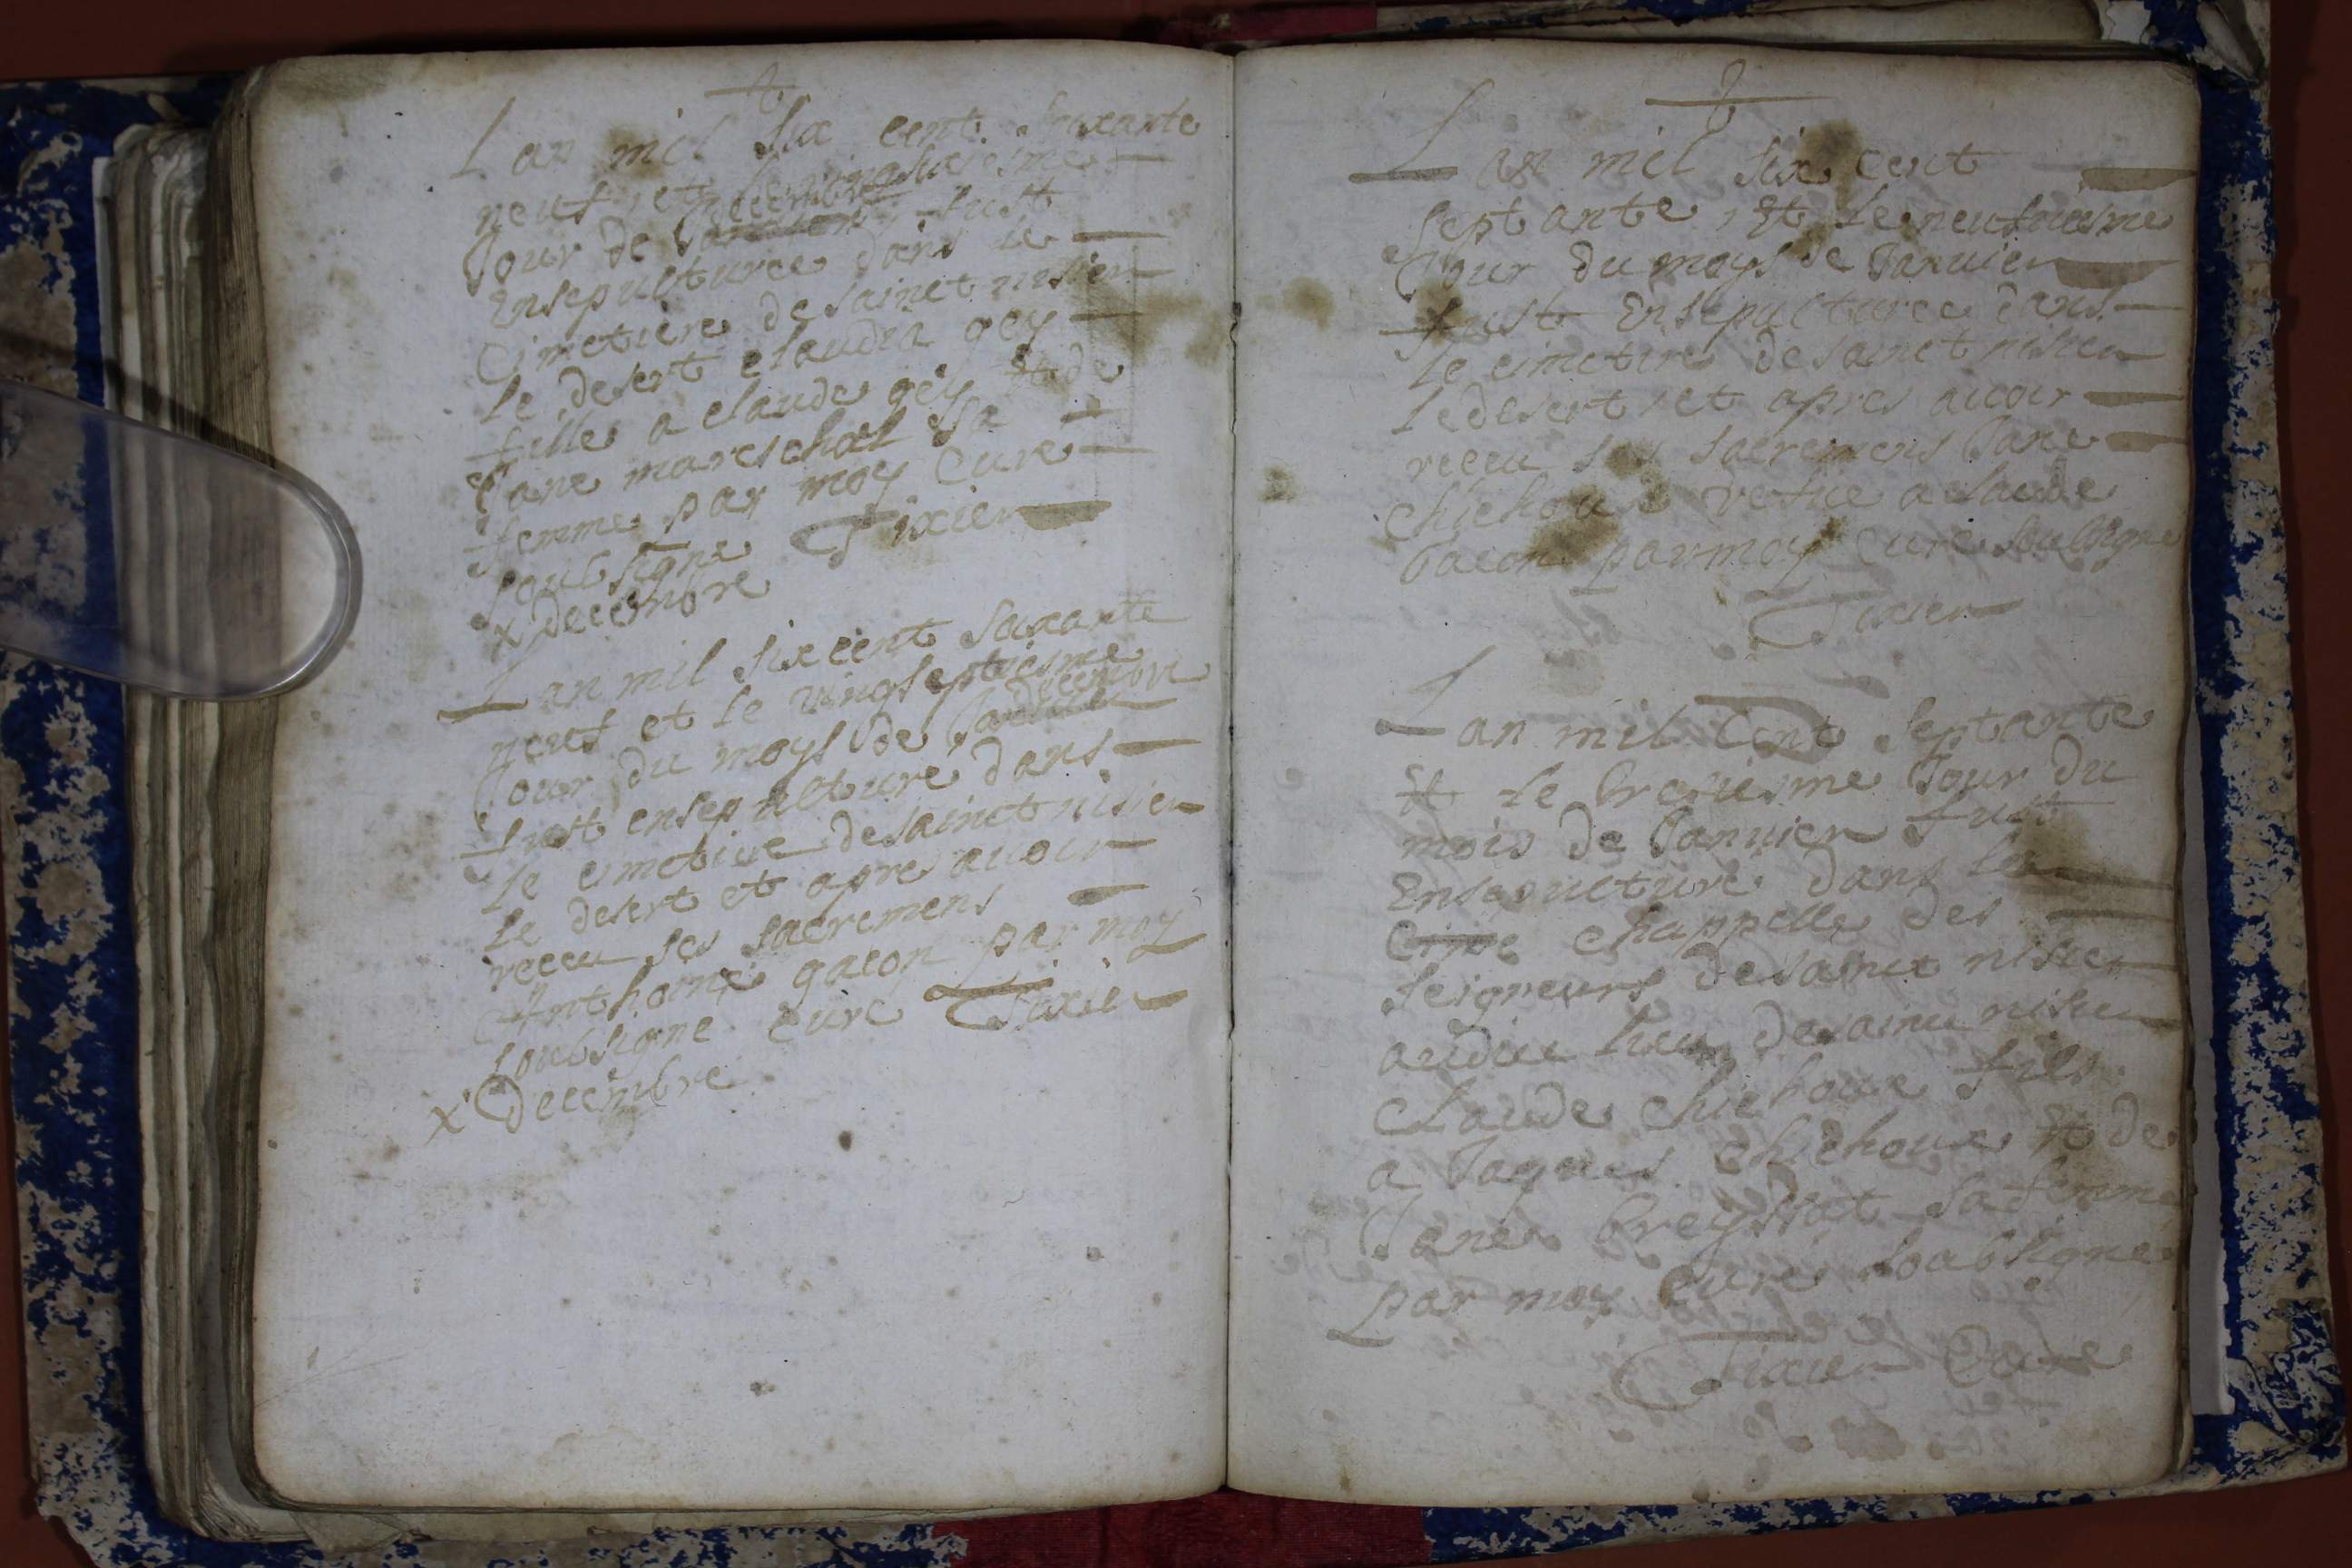 L an mil six cent soixante
neuf et le
Jour de decembre fust
Ensepulturee dans le
Cimetiere de sainct nisier
le desert claudia gey
fille a claude gey Et de
Jane mareschal sa
femme par moy Cure
soubsigne Tixier
x decembre
L an mil six cent soixante
neuf et le vingseptiesme
Jour du moys de decembre
fust ensepulture dans
le cimetiere de sainct nisier
le desert et apres avoir
receu ses sacremens
Anthoine gacon par moy
soubsigne cure Tixier
x Decembre
L an mil six cent
septante Et le neufuiesme
Jour du moys de Januier
fust Ensepulturee dans
le cimetire de sainct nisier
le desert et apres auoir
receu ses sacremens Jane
chichoux vefue a claude
bacon par moy cure soubsigne
Tixier
L an mil Cent septante
Et le Jour du
mois de Januier fust
Ensepulture dans la
chappelle des
seigneurs de sainct nisier
audict lieu de sainct nisier
Claude chichoux fils
a Jaques chichoux Et de
Jane breyssat sa femme
par moy cure soubsigne
Tixier Cure